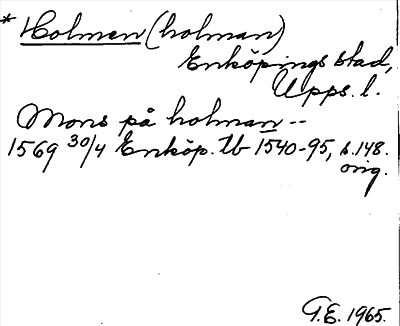 * Holmen (holman)
Enköpings stad,
Upps. l.
Mons på holman --
1569 30/4 Enköp. tb 1540-95, s. 148.
orig.
G.E. 1965.